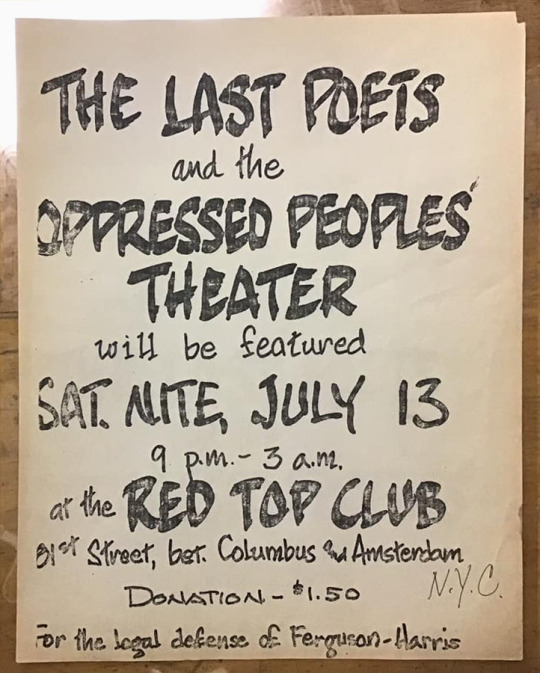 THE LAST POETS
and the
OPPRESSED PEOPLES'
THEATER
will be featured
SAT. NITE, JULY 13
9 p.m. - 3 a.m.
at the RED TOP CLUB
Street, bet. Columbus and Amsterdam
N.Y.C.
DONATION - $1.50
For the legal defense of Ferguson-Harris